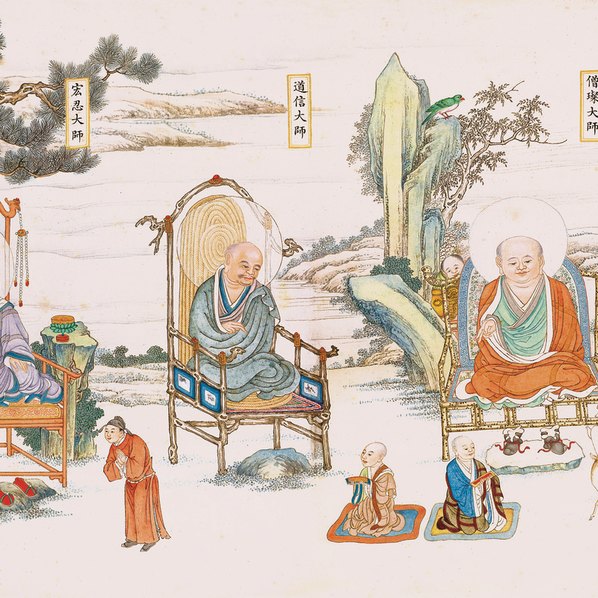 僧璨大師
道信大師
宏忍大師